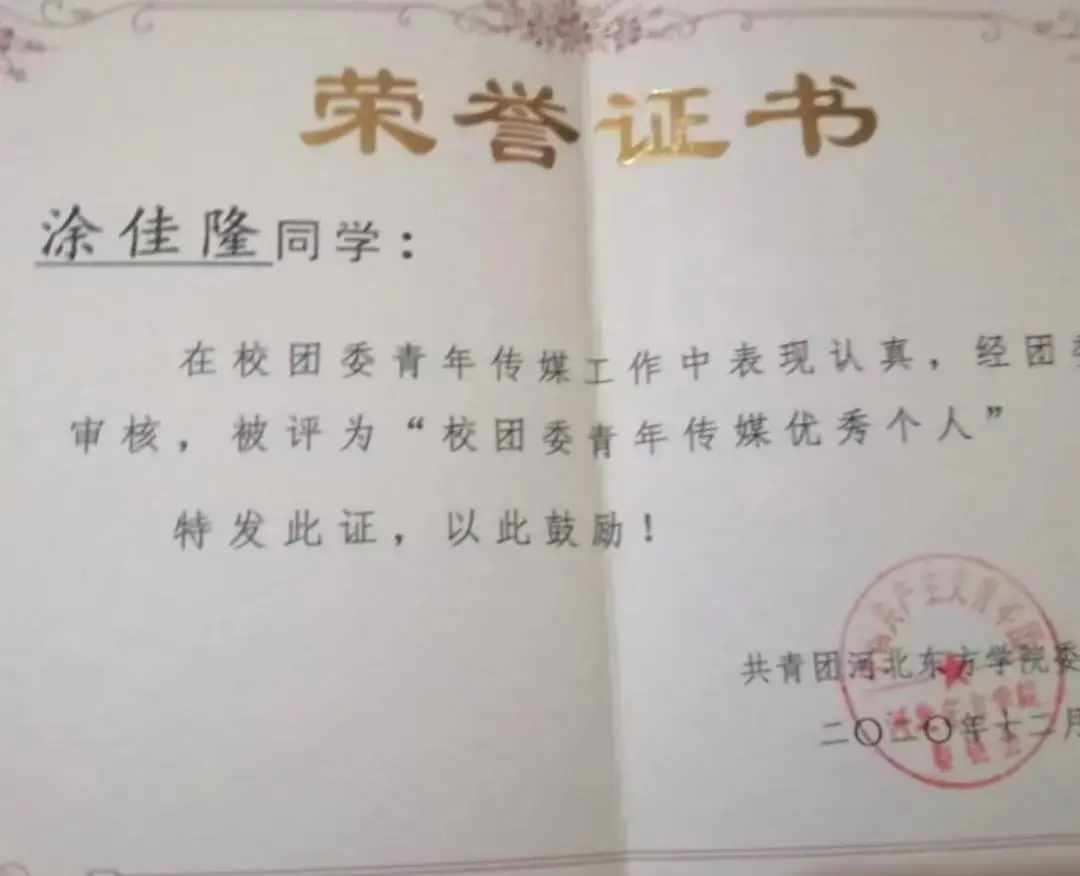 荣誉证书
涂佳隆同学：
在校团委青年传媒工作中表现认真，经团委
审核，被评为“校团委青年传媒优秀个人”
特发此证，以此鼓励！
共青团河北东方学院委
二〇二〇年十二月